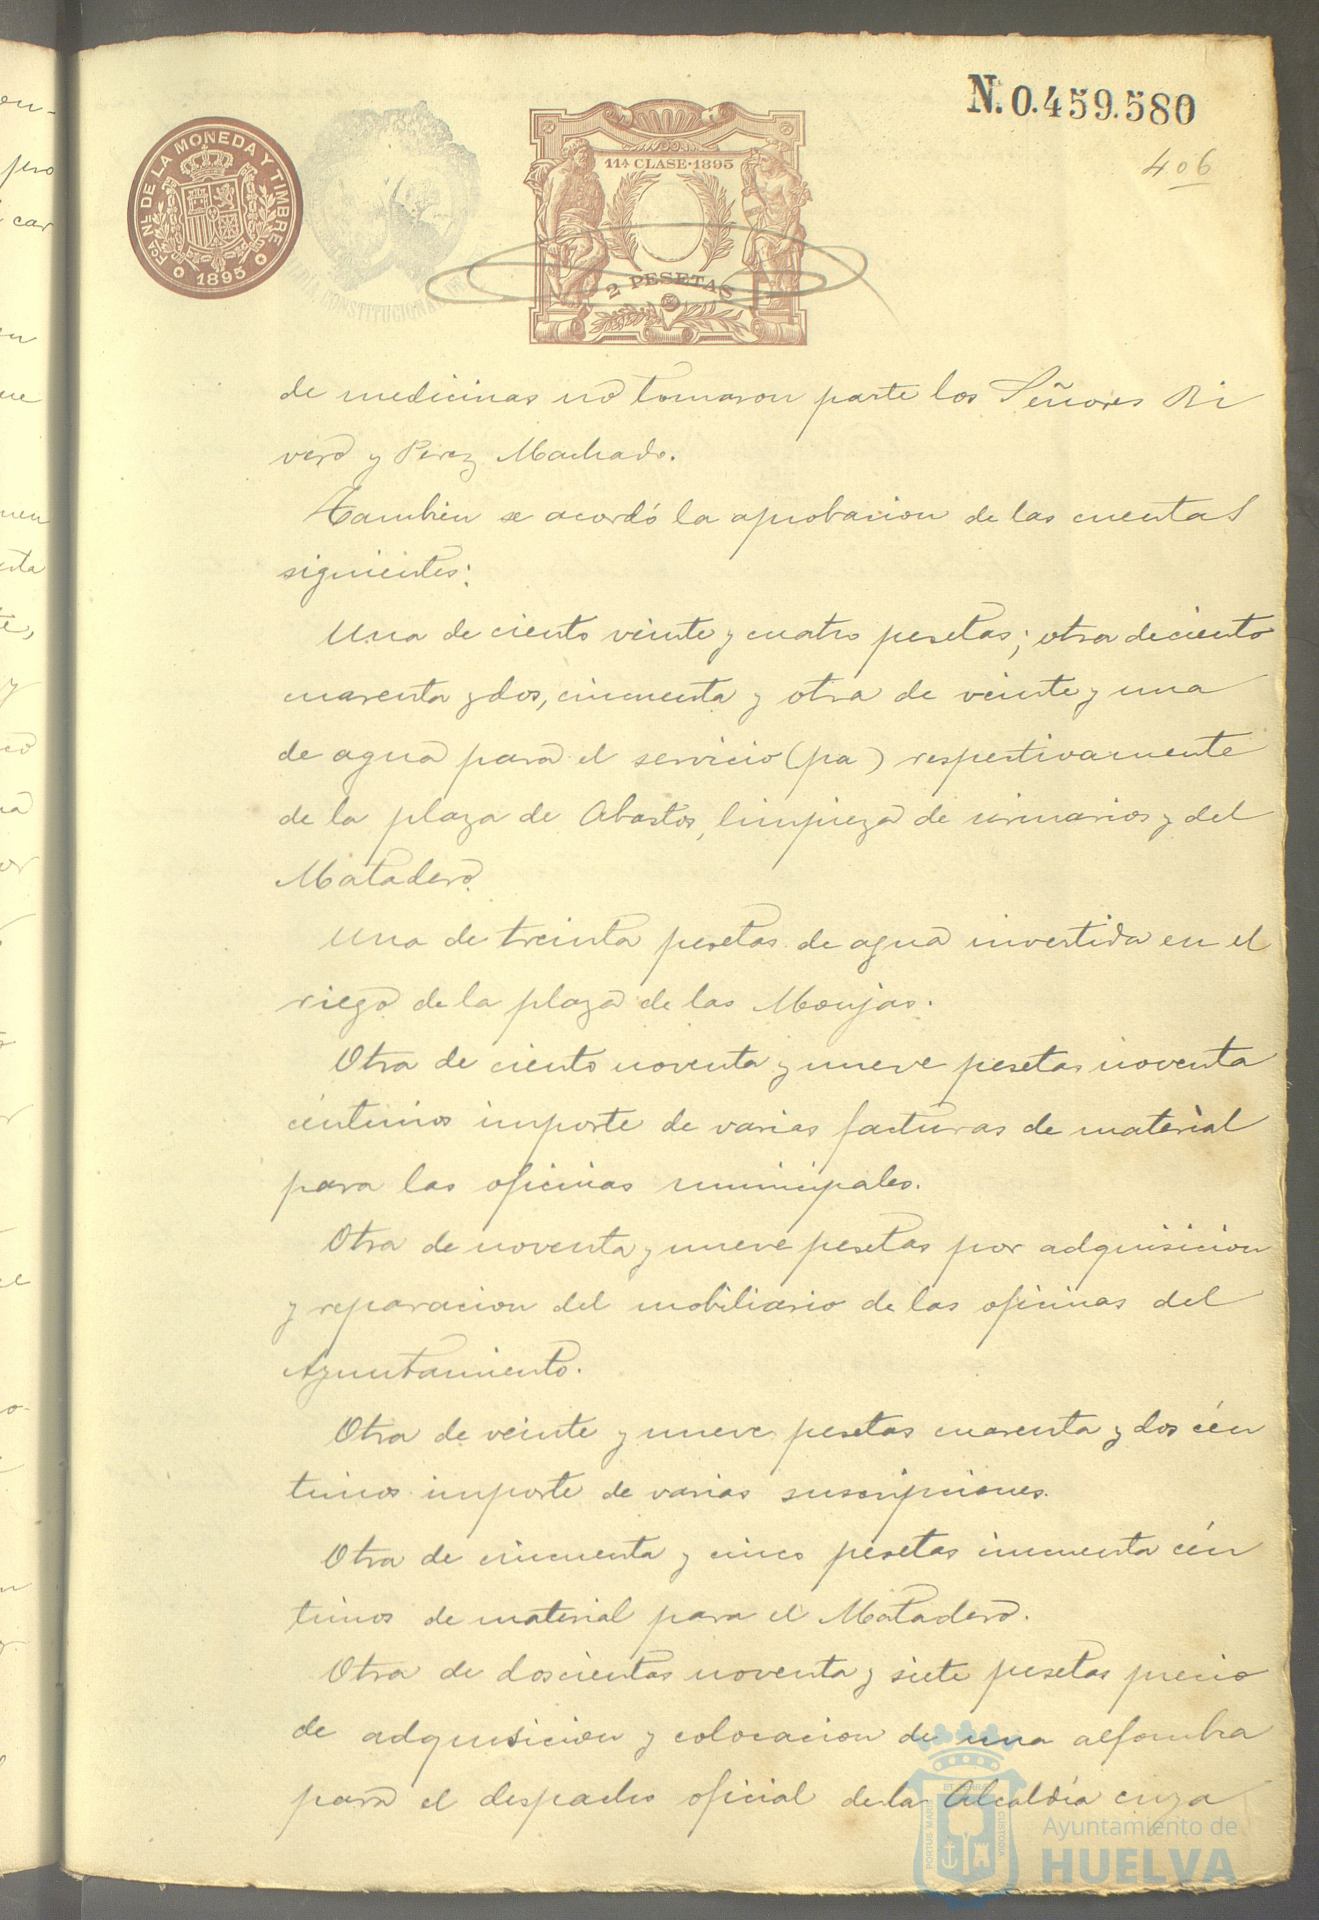 N. 0.459.580
406
Fª. Nl. DE LA MONEDA Y TIMBRE
1895
11ª CLASE·1895
2 PESETAS
CONSTITUCIONAL
de medicinas no tomaron parte los Señores Ri
vero y Perez Machado.
Tambien se acordó la aprobacion de las cuentas
siguientes:
Una de ciento veinte y cuatro pesetas; otra de ciento
cuarenta y dos, cincuenta y otra de veinte y una
de agua para el servicio (pa) respectivamente
de la plaza de Abastos, limpieza de urinarios y del
Matadero.
Una de treinta pesetas de agua invertida en el
riego de la plaza de las Monjas.
Otra de ciento noventa y nueve pesetas noventa
céntimos importe de varias facturas de material
para las oficinas municipales.
Otra de noventa y nueve pesetas por adquisicion
y reparacion del mobiliario de las oficinas del
Ayuntamiento.
Otra de veinte y nueve pesetas cuarenta y dos cén
timos importe de varias suscripciones.
Otra de cincuenta y cinco pesetas cincuenta cén
timos de material para el Matadero.
Otra de doscientas noventa y siete pesetas precio
de adquisicion y colocacion de una alfombra
para el despacho oficial de la Alcaldía cuya
PORTUS MARIS ET TERRAE CUSTODIA
Ayuntamiento de
HUELVA